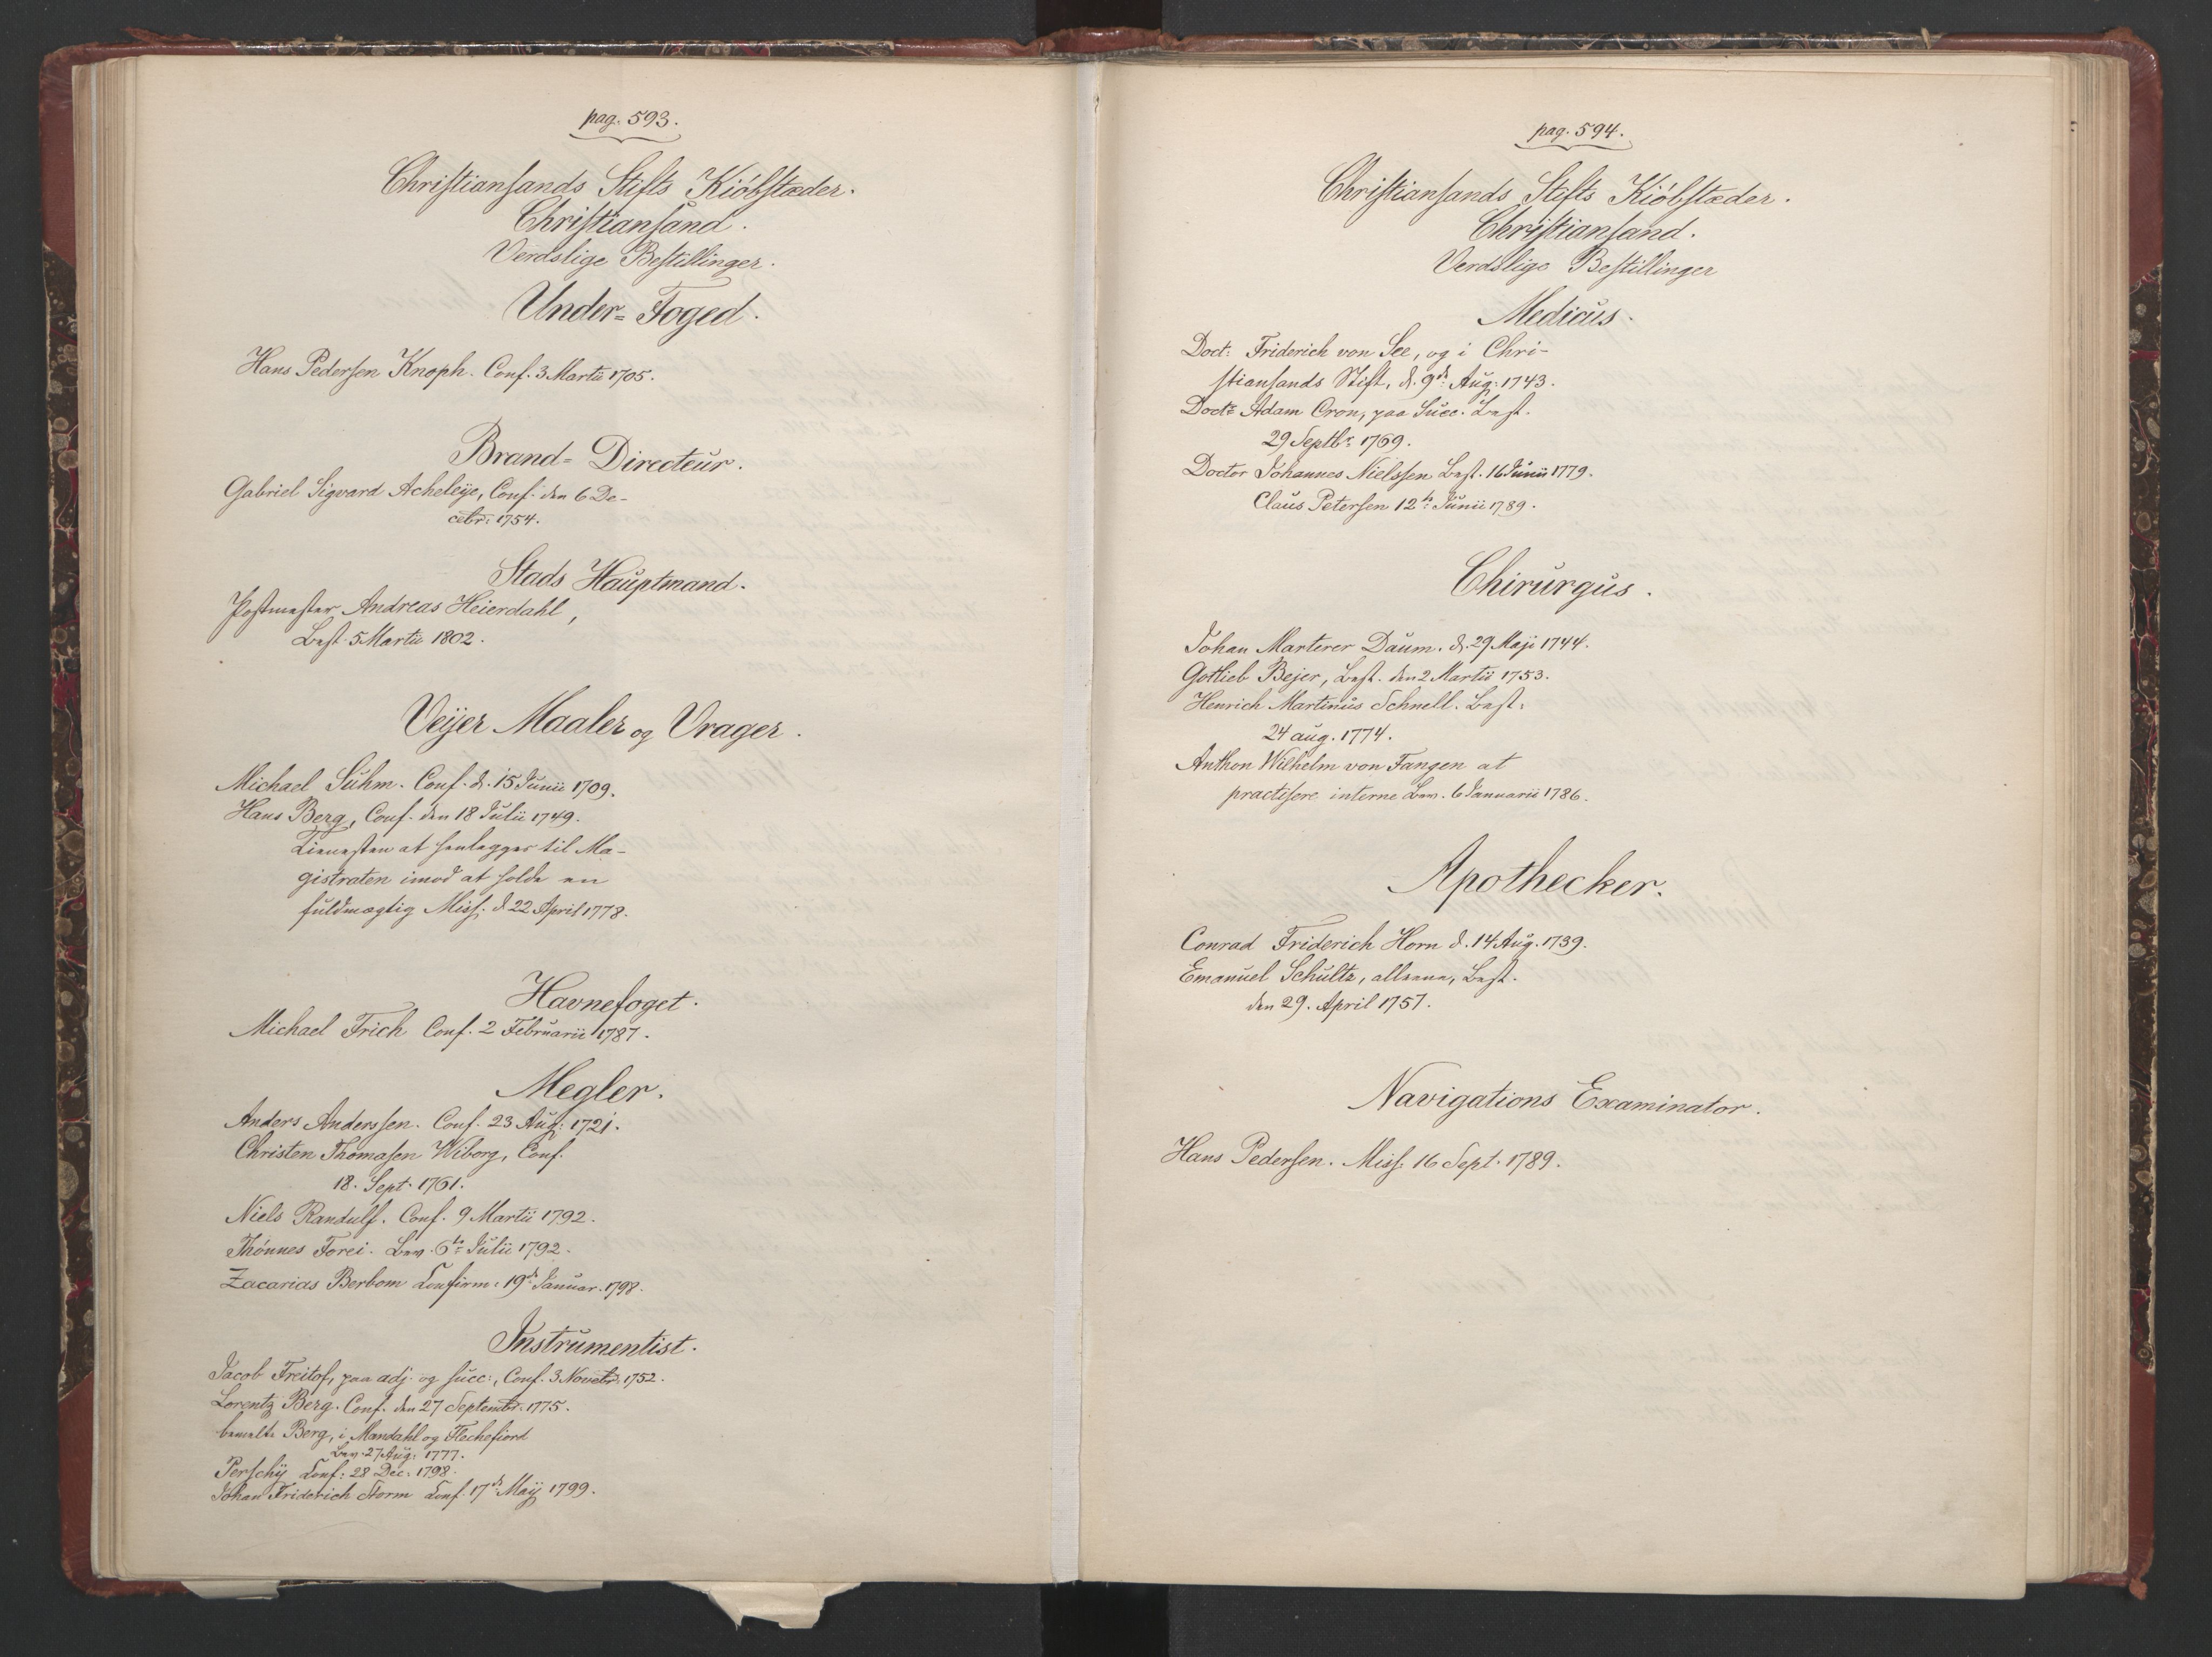 pag. 593.
Christiansands Stifts Kiöbstæder.
Christiansand.
Verdslige Bestillinger.
Under-Foged.
Hans Pedersen Knoph. Conf. 3 Martii 1705.
Brand-Directeur.
Gabriel Sigvard Acheleÿe, Conf. den 6 De-
cebr: 1754.
Stads Hauptmand.
Postmester Andreas Heierdahl,
Best. 5 Martii 1802.
Veÿer Maaler og Vrager.
Michael Suhm. Conf. d. 15 Junii 1709.
Hans Berg, Conf. den 18 Julii 1749.
Tienesten at henlægges til Ma-
gistraten imod at holde en
fuldmægtig Miss. d 22 April 1778.
Havnefoget.
Michael Frich Conf. 2 Februarii 1787.
Megler.
Anders Anderssen. Conf. 23 Aug: 1721.
Christen Thomasen Wiborg, Conf.
18. Sept. 1761.
Niels Randulf. Conf. 9 Martii 1792.
Thönnes Forei. Bev. 6te Julii 1792.
Zacarias Berbom Confirm: 19de Januar. 1798.
Instrumentist.
Jacob Freitof, paa adj. og succ:, Conf. 3 Novebr. 1752.
Lorentz Berg. Conf. den 27 Septembr. 1775.
bemelte Berg, i Mandahl og Flechefiord
Bev. 27 Aug: 1777.
Perschÿ Conf: 28 Dec: 1798.
Johan Friderich Storm Conf. 17de Maÿ 1799.
pag. 594.
Christiansands Stifts Kiöbstæder.
Christiansand.
Verdslige Bestillinger
Medicus.
Doct: Friderich von See, og i Chri-
stiansands Stift, d. 9de Aug: 1743.
Doctr Adam Cron, paa Succ. Best.
29 Septbr. 1769.
Doctor Johannes Nielssen Best. 16 Junii 1779.
Claus Petersen 12te Junii 1789.
Chirurgus.
Johan Marterer Daum. d. 29 Maji 1744.
Gotlieb Bejer, Best. den 2 Martii 1753.
Henrich Martinus Schnell. Best:
24 aug. 1774.
Anthon Wilhelm von Fangen at
practisere interne Bev. 6 Januarii 1786.
Apothecker.
Conrad Friderich Horn d. 14 Aug. 1739.
Emanuel Schultz, alleene, Best.
den 29. April 1757.
Navigations Examinator.
Hans Pedersen. Miss. 16 Sept. 1789.